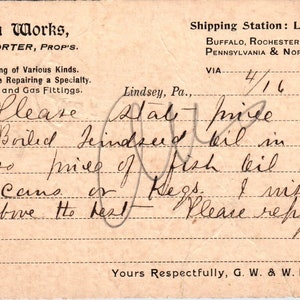 n Works,
ORTER, Prop's.
ng of Various Kinds.
e Repairing a Specialty.
and Gas Fittings.
Shipping Station: L
Buffalo, Rochester
Pennsylvania & Nor
VIA 4/16
Lindsey, Pa.,
Please state price
Boiled Lindseed Oil in
so price of Fish Oil
Cans or Kegs. I
above the best - Please rep
Yours Respectfully, G. W. & W.